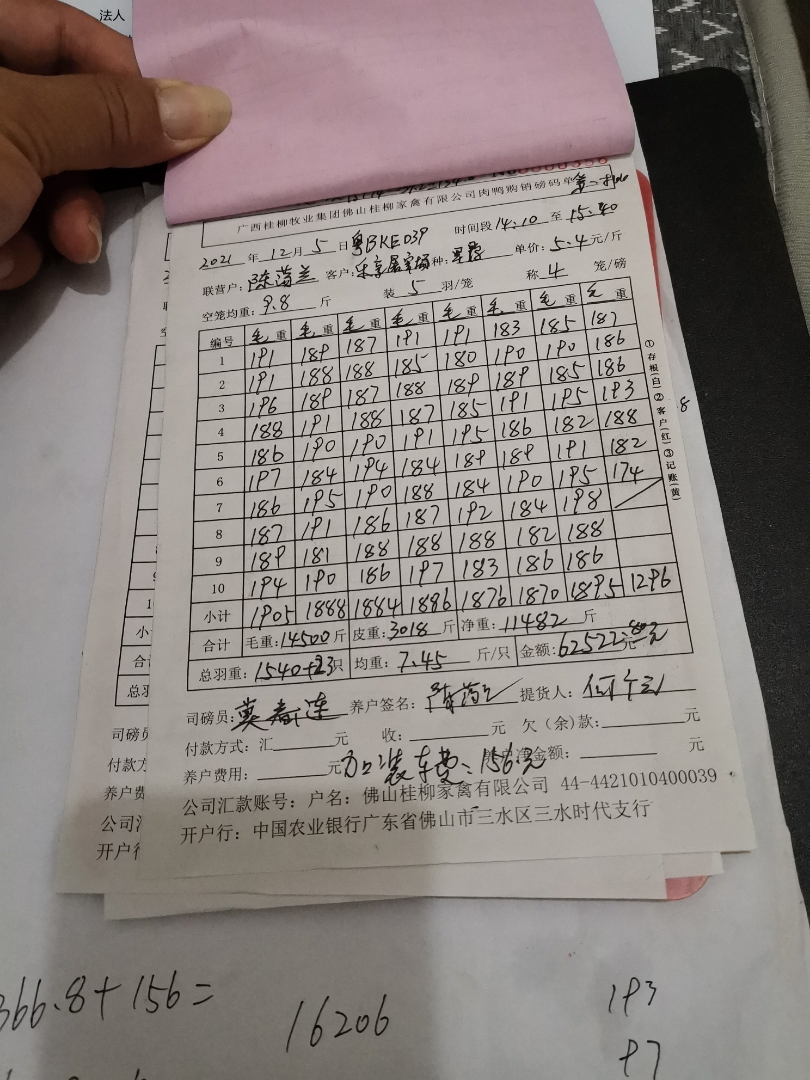 法人
广西桂柳牧业集团佛山桂柳家禽有限公司肉鸭购销磅码单
2021 年 12 月 5 日 粤BKE039 时间段 14:10 至 15:40
联营户: 陈荡兰 客户: 乐享屠宰场 种: 单价: 5.4 元/斤
空笼均重: 9.8 斤 装 5 羽/笼 称 4 笼/磅
编号 毛重 毛重 毛重 毛重 毛重 毛重 毛重 毛重
1 191 189 187 191 191 183 185 187
2 191 188 188 185 180 190 190 186
3 196 189 187 188 189 189 185 186
4 188 191 188 187 185 191 195 193
5 186 190 190 191 195 186 182 188
6 197 184 194 184 189 189 191 182
7 186 195 190 188 184 190 195 174
8 187 191 186 187 192 184 198
9 189 181 188 188 188 182 188
10 194 190 186 197 183 186 186
小计 1905 1888 1884 1886 1876 1870 1895 1296
合计 毛重: 14500 斤 皮重: 3018 斤 净重: 11482 斤
总羽重: 1540+23只 均重: 7.45 斤/只 金额: 62522元
①存根(白)②客户(红)③记账(黄)
司磅员: 莫春莲 养户签名: 提货人:
付款方式: 汇 元 收: 元 欠(余)款: 元
养户费用: 元 加装车费: 156元 净金额: 元
公司汇款账号: 户名: 佛山桂柳家禽有限公司 44-4421010400039
开户行: 中国农业银行广东省佛山市三水区三水时代支行
366.8+156=
16206
193
97